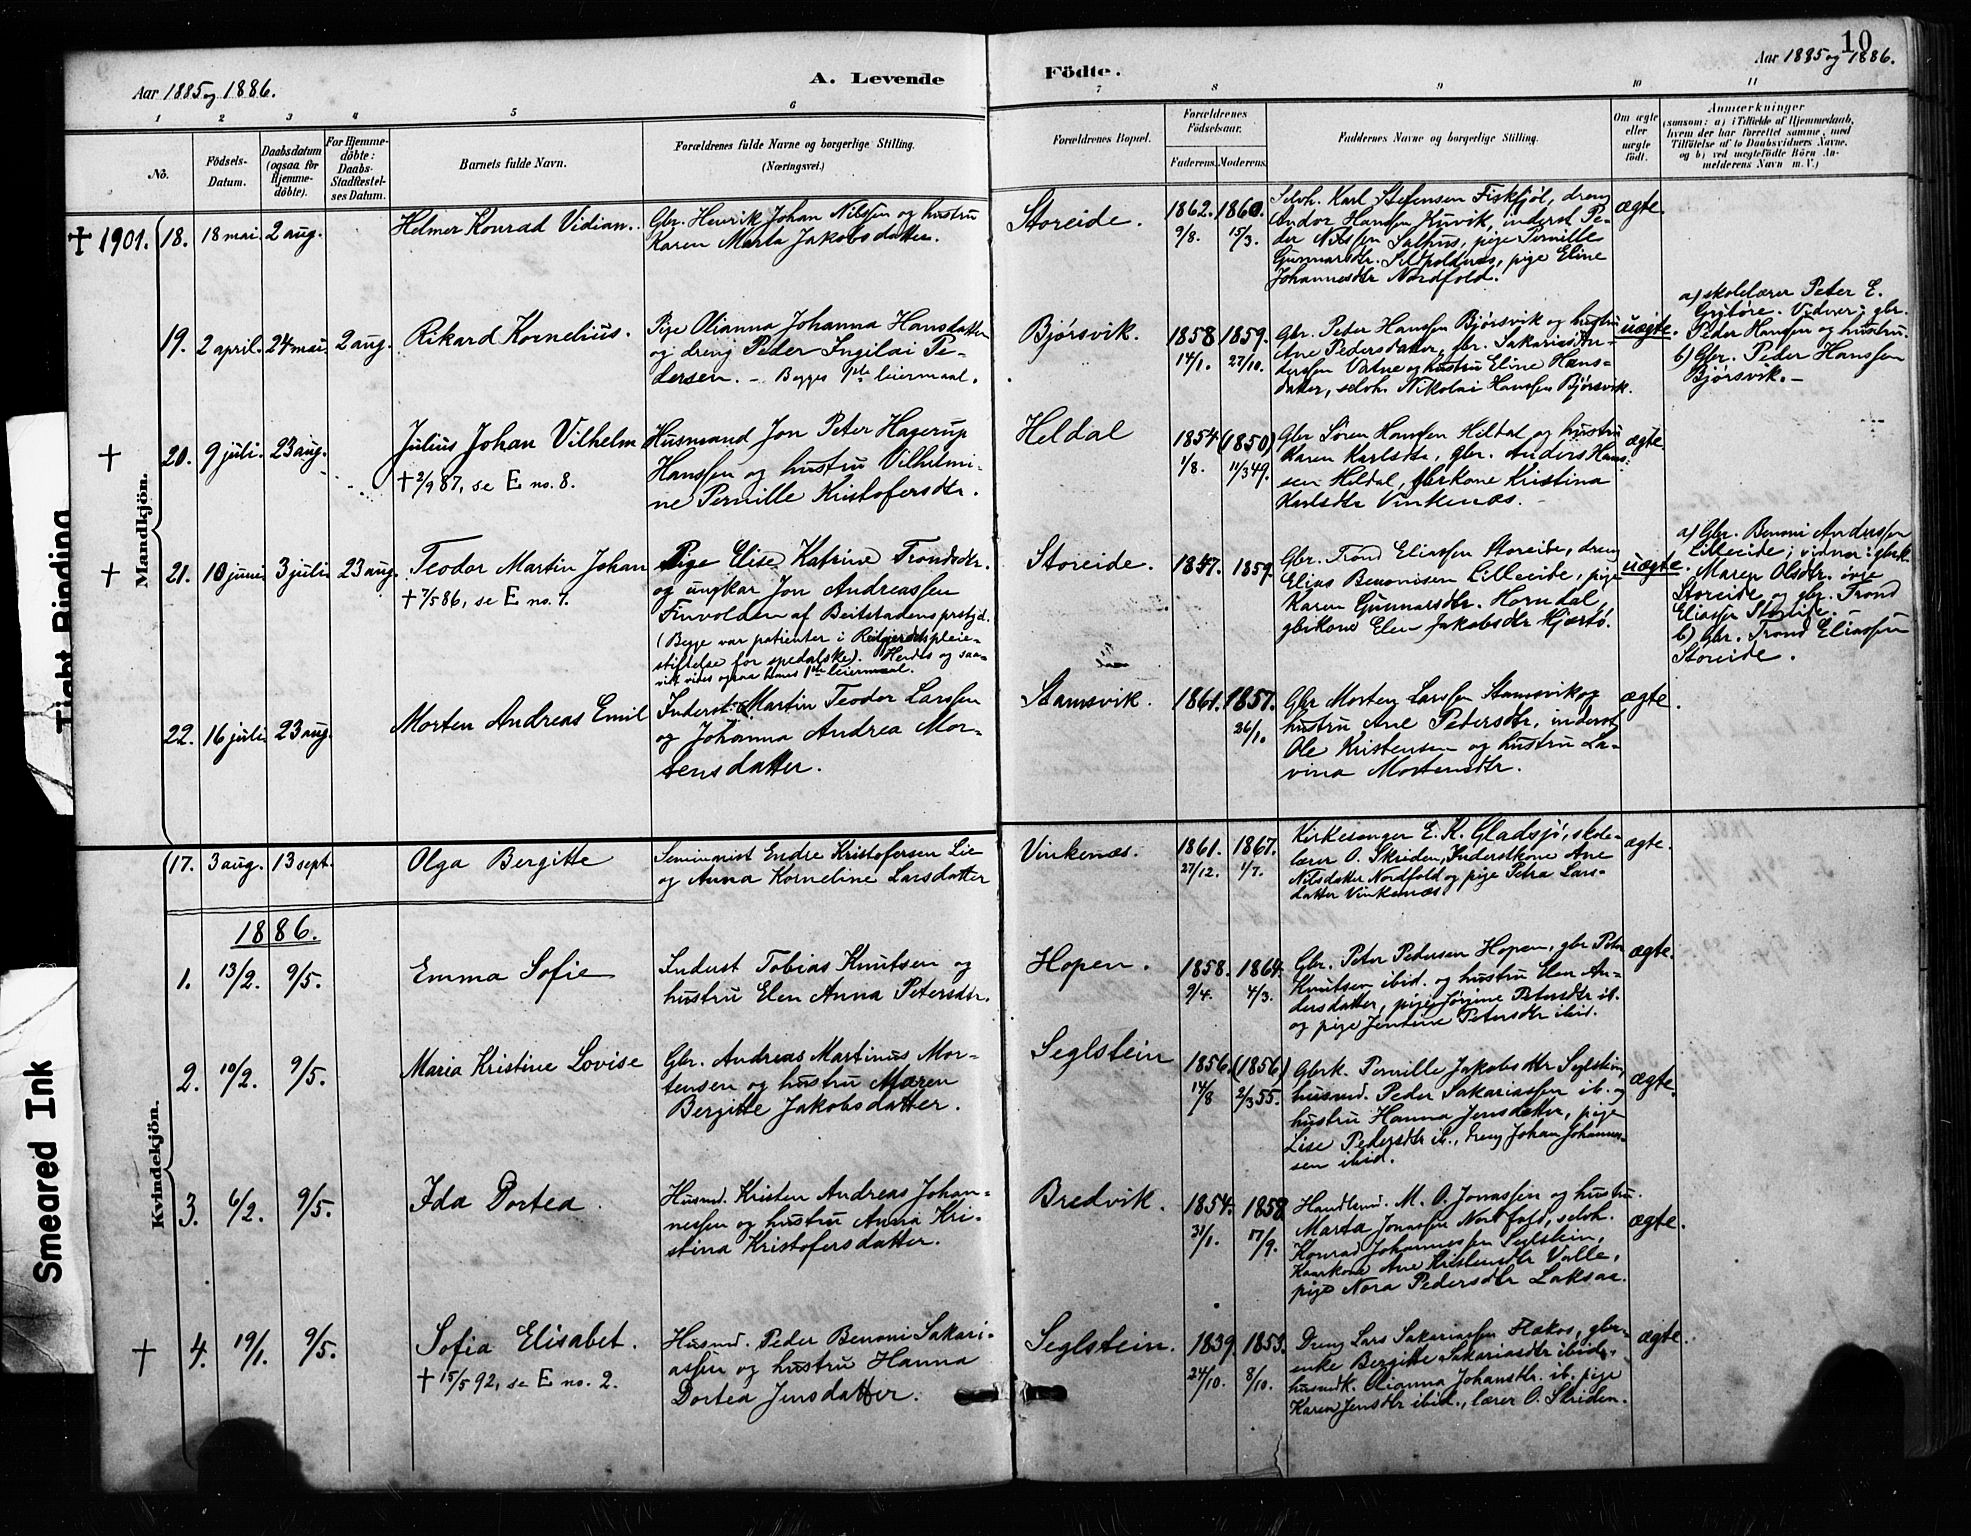 10
Aar 1885 og 1886.
A. Levende
Födte.
Aar 1885 og 1886.
1
2
3
4
5
6
7
8
9
10
11
No.
Födsels-
Datum.
Daabsdatum
(ogsaa for
Hjemme-
döbte).
For Hjemme-
döbte:
Daabs-
Stadfæstel-
ses Datum.
Barnets fulde Navn.
Forældrenes fulde Navne og borgerlige Stilling.
(Næringsvei.)
Forældrenes Bopæl.
Forældrenes
Födselsaar.
Faderens.
Moderens.
Faddernes Navne og borgerlige Stilling.
Om ægte
eller
uægte
födt.
Anmærkninger
(saasom: a) i Tilfælde af Hjemmedaab,
hvem der har forrettet samme, med
Tilföielse af to Daabsvidners Navne,
og b) ved uegtefödte Börn An-
melderens Navn m. V.)
Mandkjön.
† 1901.
18.
18 mai
2 aug.
Helmer Konrad Vidian.
Gbr. Henrik Johan Nilssen og hustru
Karen Marta Jakobsdatter.
Storeide.
1862.
9/8.
1860.
15/3.
Selvh. Karl Stefensen Fiskfjöl, dreng
Andor Hanssen Kuvik, inderst Pe-
der Nilssen Salhus, pige Pernille
Gunnarsdtr. , pige Eline
Johannesdtr Nordfold.
ægte.
19.
2 april.
24 mai
2 aug.
Rikard Kornelius.
Pige Olianna Johanna Hansdatter
og dreng Peder Ingilai Pe-
dersen. – Begges 1ste leiermaal.
Bjørsvik.
1858
14/1.
1859.
27/10.
Gbr. Peder Hanssen Bjørsvik og hustru
Ane Pedersdatter, gbr. Sakarias An-
derssen Vatne og hustru Eline Hans-
datter, selvh. Nikolai Hanssen Bjørsvik.
uægte.
a) skolelærer Peter E.
. Vidner: gbr.
Peder Hanssen og hustru.
b) Gbr. Peder Hanssen
Bjørsvik. –
†
20.
9 juli.
23 aug.
Julius Johan Vilhelm
† 2/9 87, se E no. 8.
Husmand Jon Peter Hagerup
Hanssen og hustru Vilhelmi-
ne Pernille Kristofersdtr.
Heldal
1854
1/8.
(1850)
11/3 49.
Gbr Sören Hanssen Hildal og hustru
Karen Karlsdtr, gbr. Anders Hans-
sen Hildal, Kristina
Karlsdtr Vinkenæs.
ægte.
†
21.
10 juni
3 juli
23 aug.
Teodor Martin Johan
† 7/5 86, se E no. 7.
Pige Elise Katrine Trondsdtr.
og ungkar Jon Andreassen
Finvolden af Beitstadens prstgd.
(Begge var patienter i Reitgjerdets pleie-
stiftelse for spedalske). Hendes og saa-
vidt vides ogsaa hans 1ste leiermaal.
Storeide.
1847.
1859.
Gbr. Trond Eliassen Storeide, dreng
Elias Benonisen Lilleeide, pige
Karen Gunnarsdtr. Horndal,
gbrkone Elen Jakobsdtr Kjærsö.
uægte.
a) Gbr. Benoni Anderssen
Lilleeide; vidner: gbrk.
Maren Olsdtr. øvre
Storeide og gbr. Trond
Eliassen Storeide. –
b) gbr. Trond Eliassen
Storeide.
22.
16 juli
23 aug.
Morten Andreas Emil
Inderst Martin Teodor Larssen
og Johanna Andrea Mor-
tensdatter.
Stamsvik.
1861.
1857.
26/1.
Gbr Morten Larssen Stamsvik og
hustru Ane Pedersdtr, inderst
Ole Kristensen og hustru La-
vina Mortensdtr.
ægte.
Kvindekjön.
17.
3 aug.
13 sept.
Olga Bergitte
Seminarist Endre Kristofersen Lie
og Anna Korneline Larsdatter
Vinkenæs.
1861.
27/12.
1867.
1/7.
Kirkesanger E. K. Gladsjø, skole-
lærer O. Skriden, Inderstkone Ane
Nilsdatter Nordfold og pige Petra Lars-
datter Vinkenæs.
ægte.
1886.
1.
13/2.
9/5.
Emma Sofie
Inderst Tobias Knutsen og
hustru Elen Anna Petersdtr.
Hopen.
1858.
9/4.
1864.
4/3.
Gbr. Peter Pedersen Hopen, gbr Peter
Knutsen ibid. og hustru Elen An-
dersdatter, pige Jörgine Petersdtr ib.
og pige Jentine Petersdtr ibid.
ægte.
2.
10/2.
9/5.
Maria Kristine Lovise
Gbr. Andreas Martinus Mor-
tensen og hustru Maren
Bergitte Jakobsdatter.
Seglstein
1856.
14/8
(1856)
2/3 55.
Gbrk. Pernille Jakobsdtr Seglstein,
husmd. Peder Sakariassen ib. og
hustru Hanna Jensdatter, pige
Lise Pedersdtr ib., dreng Johan Johannes-
sen ibid.
ægte.
3.
6/2.
9/5.
Ida Dortea.
Husmd. Kristen Andreas Johan-
nessen og hustru Anna Kri-
stina Kristofersdatter.
Bredvik.
1854.
31/1.
1858
17/9.
Handlsmd. M. O. Jonassen og hustru
Marta Jonassen Nordfold, selvh.
Konrad Johannessen Seglstein,
Ane Kristensdtr Valle,
pige Nora Pedersdtr Laksaa.
ægte.
†
4.
19/1.
9/5.
Sofia Elisabet.
† 15/5 92, se E no. 2.
Husmd. Peder Benoni Sakari-
assen og hustru Hanna
Dortea Jensdatter.
Seglstein.
1839.
24/10.
1853.
8/10.
Dreng Lars Sakariassen Flakos, gbr-
enke Bergitte Sakariasdtr ibid,
husmdk. Olianna Johansdtr. ib. pige
Karen Jensdtr ibid., lærer O. Skriden.
ægte.
Tight Binding
Smeared Ink